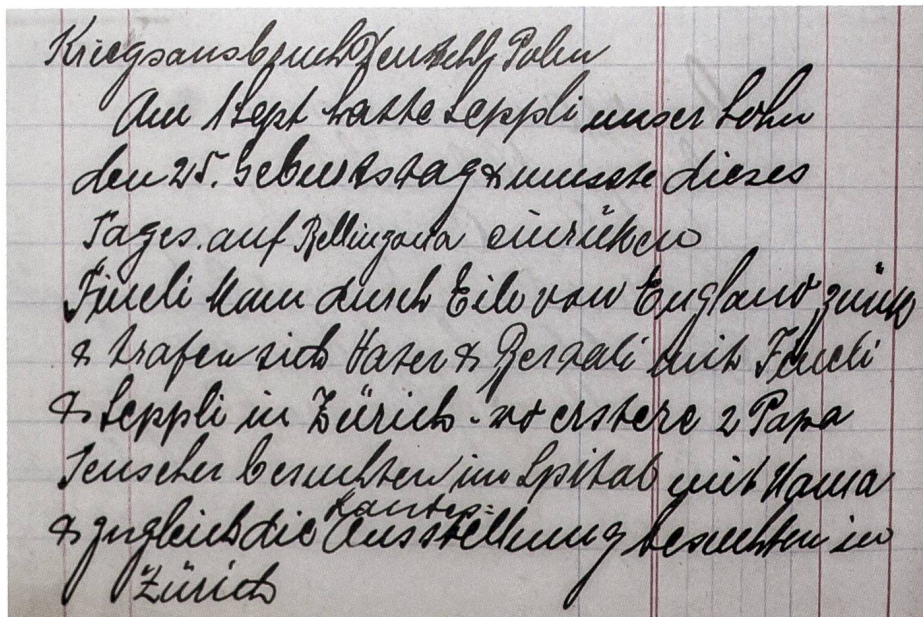 Kriegsausbruch Deutschl Polen
Am 1 Sept hatte Seppli unser Sohn
den 25. Geburtstag & musste dieses
Tages. auf Bellinzona einrücken
kam durch Eile von England zurück
& trafen sich Vater & mit
& Seppli in Zürich - wo erstere 2 Papa
besuchten im Spital mit Mama
& zugleich die Landes=
Ausstellung besuchten in
Zürich